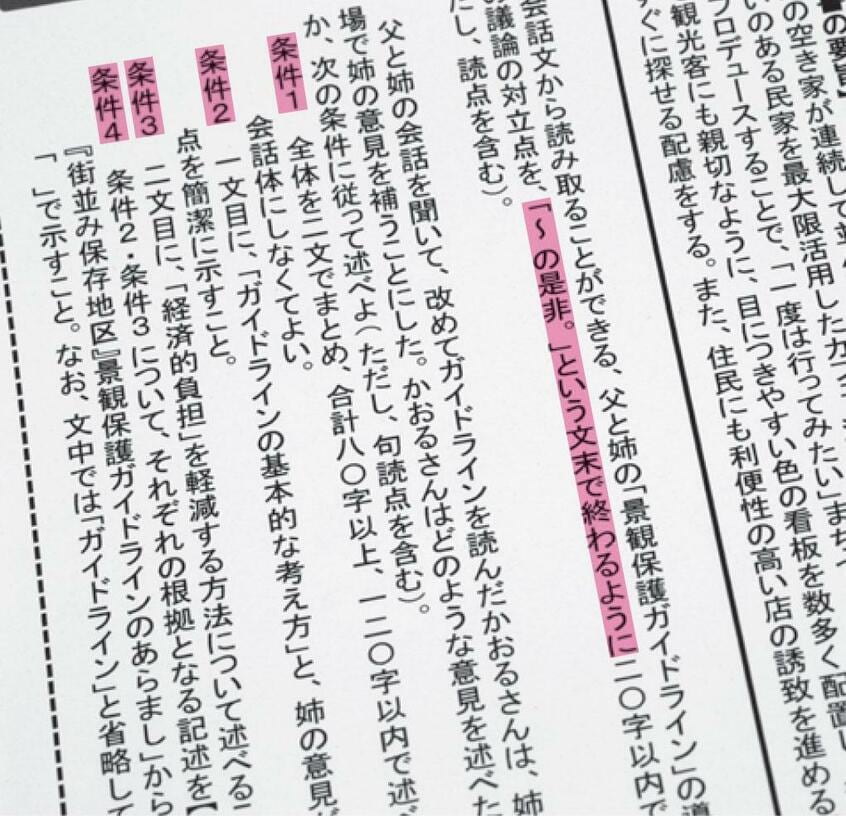 の要旨】
の空き家が連続して並
いのある民家を最大限活用したカフェ
プロデュースすることで、「一度は行ってみたい」まちづ
観光客にも親切なように、目につきやすい色の看板を数多く配置し
ぐに探せる配慮をする。また、住民にも利便性の高い店の誘致を進める
会話文から読み取ることができる、父と姉の「景観保護ガイドライン」の導
の議論の対立点を、「~の是非。」という文末で終わるように二〇字以内で
だし、読点を含む)。
父と姉の会話を聞いて、改めてガイドラインを読んだかおるさんは、姉
場で姉の意見を補うことにした。かおるさんはどのような意見を述べた
か、次の条件に従って述べよ(ただし、句読点を含む)。
条件1 全体を二文でまとめ、合計八〇字以上、一二〇字以内で述べ
会話体にしなくてよい。
条件2 一文目に、「ガイドラインの基本的な考え方」と、姉の意見が
点を簡潔に示すこと。
条件3 二文目に、「経済的負担」を軽減する方法について述べるこ
条件4 条件2・条件3について、それぞれの根拠となる記述を【
『街並み保存地区』景観保護ガイドラインのあらまし」から
「 」で示すこと。なお、文中では「ガイドライン」と省略して